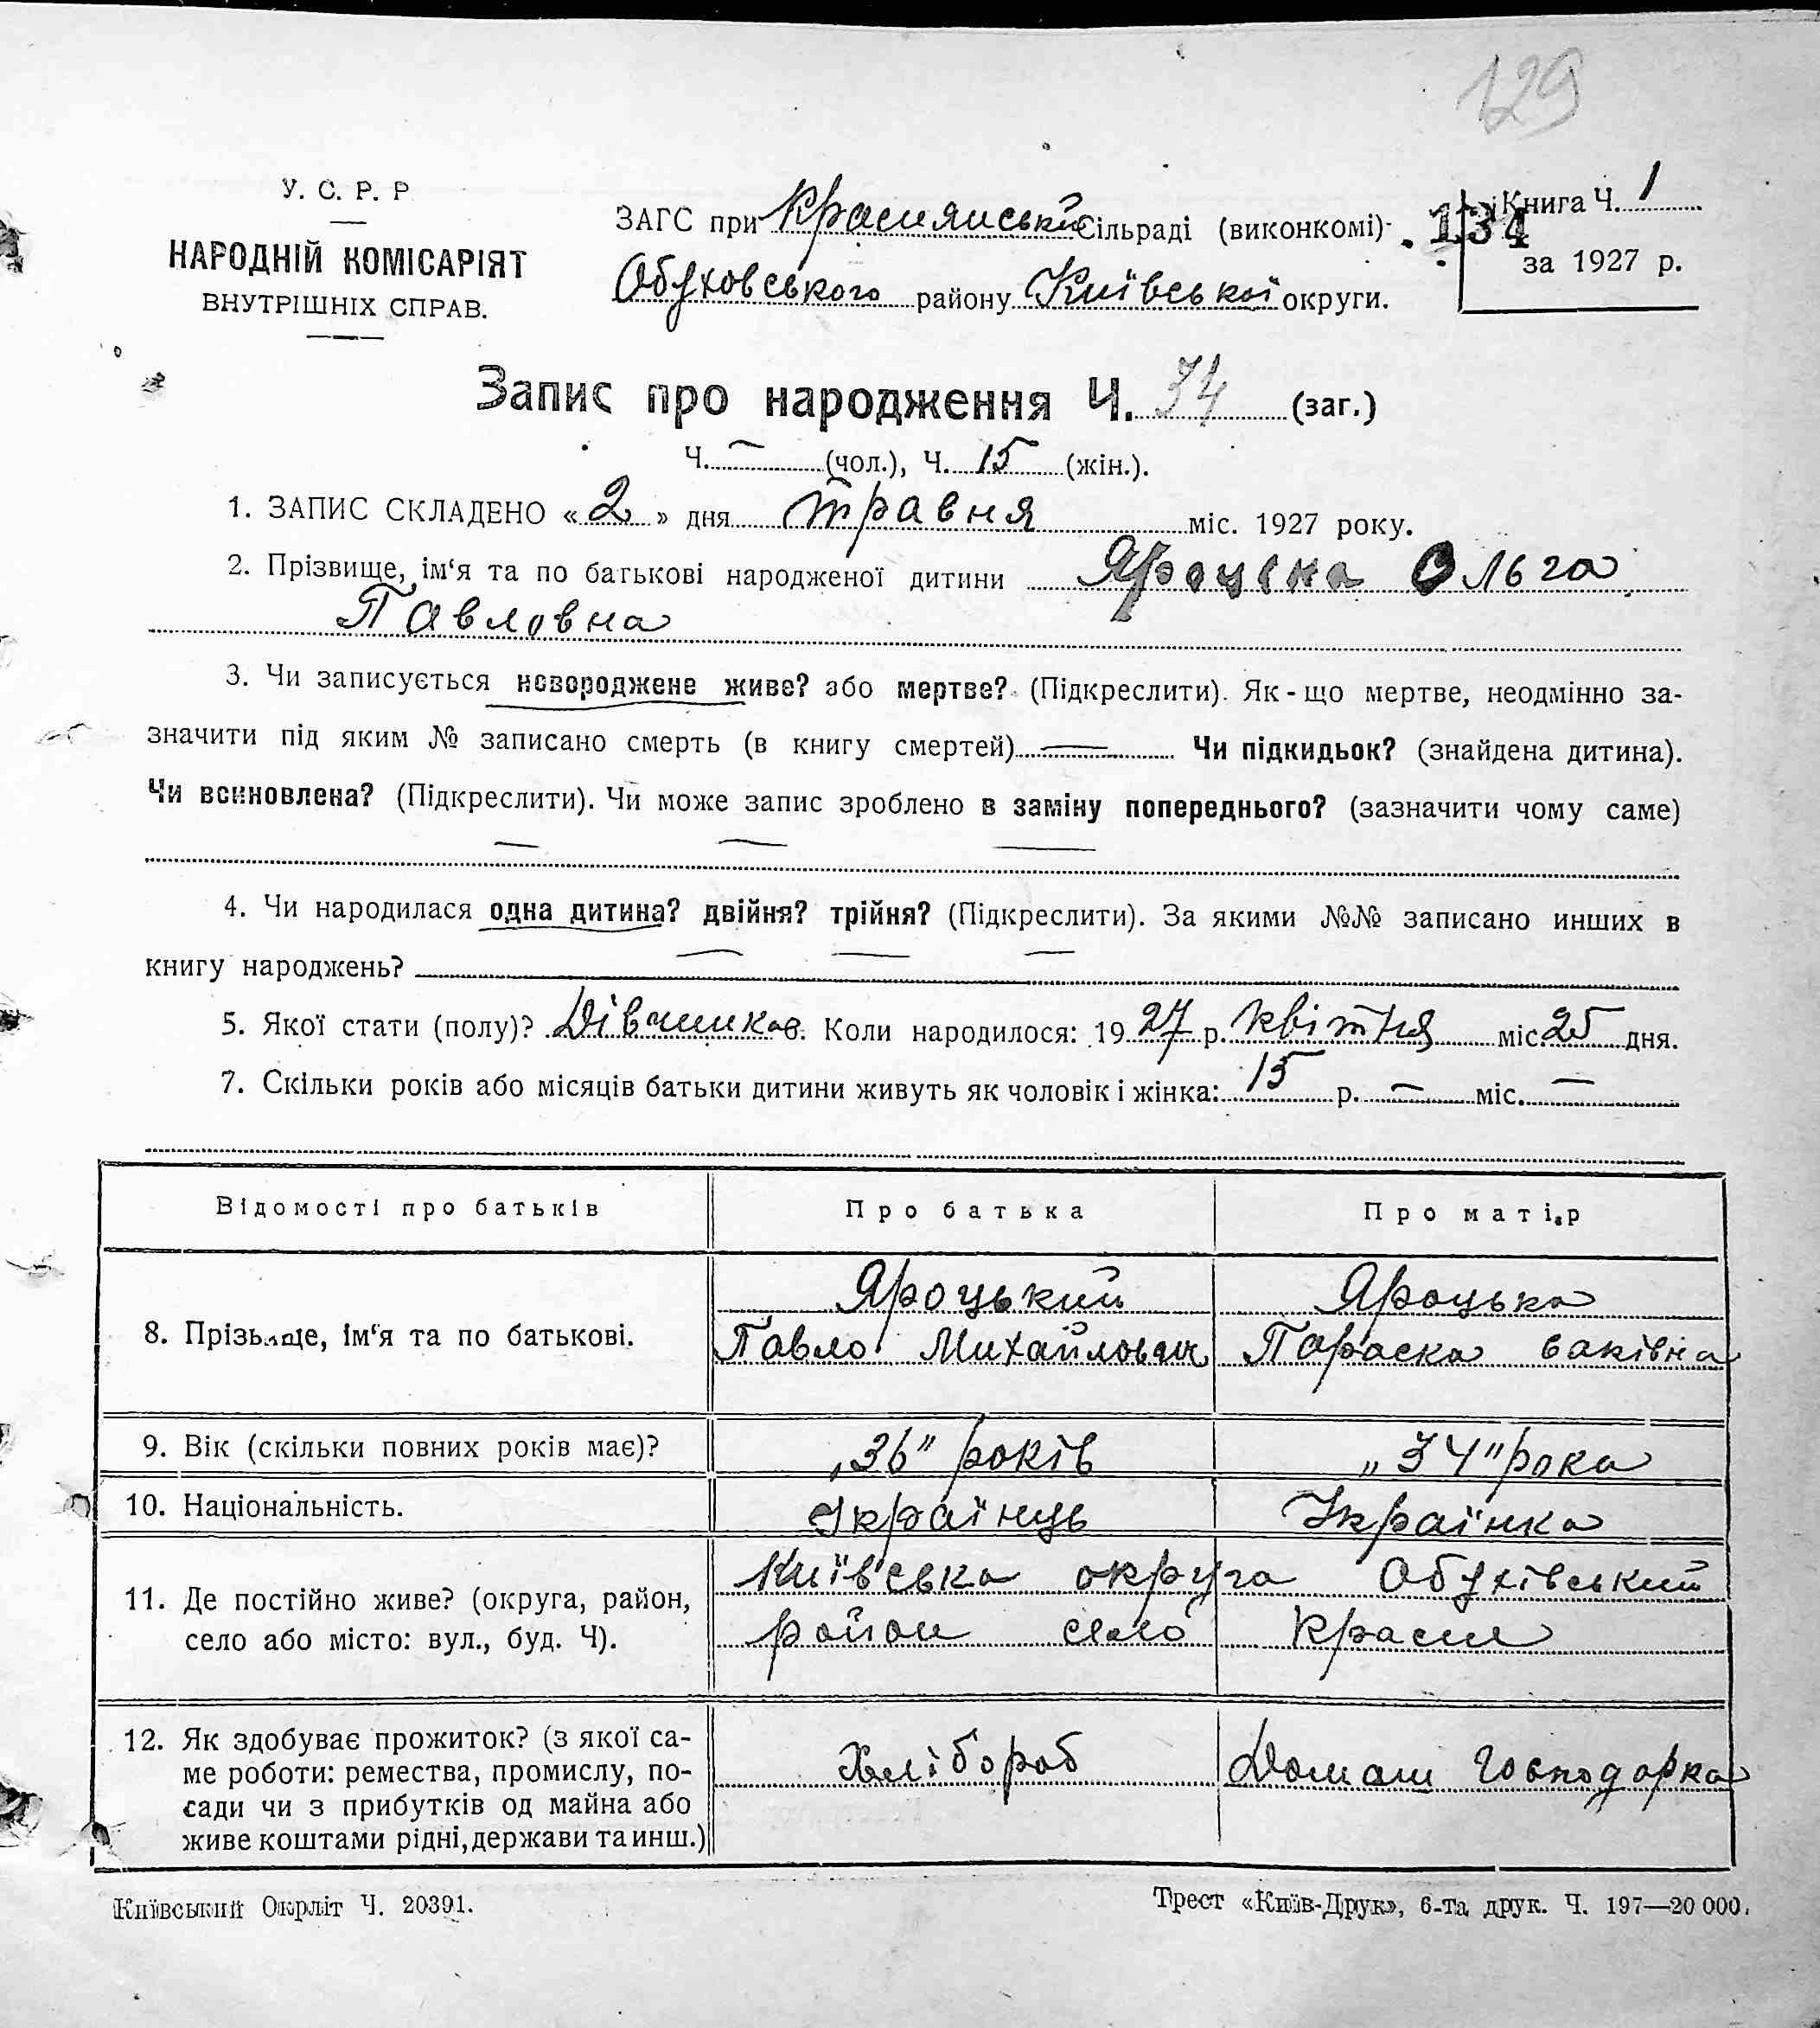 129
У. С. Р. Р
НАРОДНІЙ КОМІСАРІЯТ
ВНУТРІШНІХ СПРАВ.
ЗАГС при Краснянській Сільраді (виконкомі)
Обуховського району Київської округи.
134
Книга Ч. 1
за 1927 р.
Запис про народження Ч. 34 (заг.)
Ч. — (чол.), Ч. 15 (жін.).
1. ЗАПИС СКЛАДЕНО «2» дня травня міс. 1927 року.
2. Прізвище, ім‘я та по батькові народженої дитини Яроцька Ольга
Павловна
3. Чи записується новороджене живе? або мертве? (Підкреслити). Як-що мертве, неодмінно за-
значити під яким № записано смерть (в книгу смертей) — Чи підкидьок? (знайдена дитина).
Чи всиновлена? (Підкреслити). Чи може запис зроблено в заміну попереднього? (зазначити чому саме)
— — —
4. Чи народилася одна дитина? двійня? трійня? (Підкреслити). За якими №№ записано инших в
книгу народжень? — — —
5. Якої стати (полу)? Дівчинка. Коли народилося: 1927 р. квітня міс. 25 дня.
7. Скільки років або місяців батьки дитини живуть як чоловік і жінка: 15 р. — міс. —
Відомості про батьків Про батька Про матір
8. Прізвище, ім‘я та по батькові.
Яроцький
Павло Михайлович
Яроцька
Параска
9. Вік (скільки повних років має)? „36" років „34" рока
10. Національність. Українець Українка
11. Де постійно живе? (округа, район,
село або місто: вул., буд. Ч).
Київська округа Обухівський
район село Красне
12. Як здобуває прожиток? (з якої са-
ме роботи: ремества, промислу, по-
сади чи з прибутків од майна або
живе коштами рідні, держави та инш.)
Хлібороб
Домаш господарка
Київський Окрліт Ч. 20391.
Трест «Київ-Друк», 6-та друк. Ч. 197—20 000.